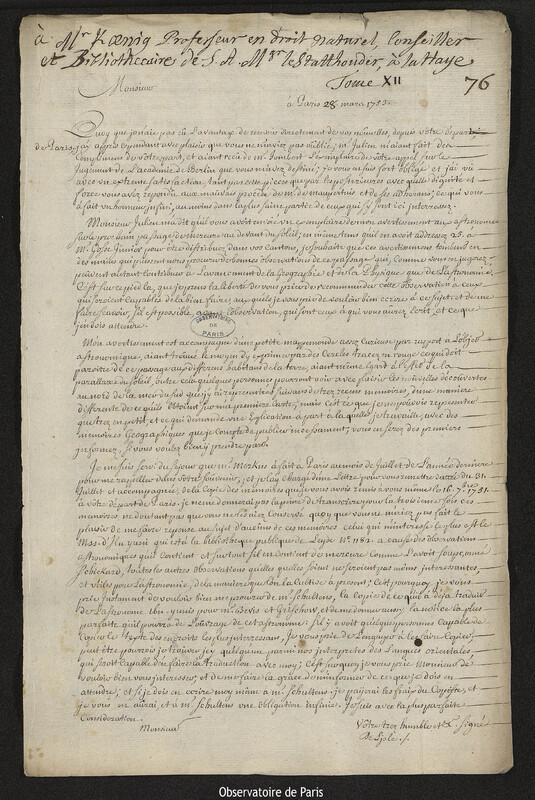 à Mr. Kœnig Professeur en droit naturel, Conseiller
et Bibliothecaire de S. A. Mgr le Stathouder, à la Haye
Tome XII
76
Monsieur
à Paris 28 mars 1753.
Quoy que je n'aie pas eu l'avantage de recevoir directement de vos nouvelles, depuis votre départ
de Paris, j'ay appris cependant avec plaisir que vous ne m'aviez pas oublié; mr. Julien m'aiant fait des
complimens de votre part, et aiant receu de mr. Jombert l'exemplaire de votre appel sur le
Jugement de l'académie de Berlin que vous m'aviez destiné; je vous en suis fort obligé et j'ai vû
avec un extrême satisfaction, tant par cette piece que par les posterieures avec quelle dignité et
force vous avez repondu aux mauvais procedés de mr. de maupertuis et de ses adherens; ce qui vous
a fait un honneur infini, au moins dans la plus saine partie de ceux qui se sont ici interressez.
Monsieur Julien m'a dit qu'il vous avoit envoié un exemplaire de mon avertissement aux astronomes
sur le prochain passage de mercure au devant du soleil; en même tems qu'il en avoit adressez 25. à
Mr. Gosse Junior pour être distribuez dans vos cantons, je souhaite que ces avertissemens tombent en
des mains qui puissent nous procurer de bonnes observations de ce passage qui, comme vous en jugerez
peuvent autant contribuer à l'avancement de la Geographie et de la Physique que de l'astronomie.
C'est sur ce pied là, que je prens la liberté de vous prier de recommander cette observation à ceux
qui seroient capables de la bien faire, aux quels je vous prie de vouloir bien ecrire à ce sujet et de me
faire scavoir, s'il est possible, avant l'observation, qui sont ceux à qui vous aurez ecrit, et ce que
j'en dois attendre.
OBSERVATOIRE DE PARIS
Mon avertissement est accompagné d'une petite mappemonde assez curieuse par rapport à l'objet
astronomique, aiant trouvé le moyen d'y exprimer par des cercles tracez en rouge ce qui doit
paroitre de ce passage aux differens habitans de la terre, aiant même egard à l'effet de la
parallaxe du soleil, outre cela quelques personnes pourront voir avec plaisir les nouvelles découvertes
au nord de la mer du sud que j'y ai representées suivant des memoires, d'une maniere
differente de ce qu'ils etoient sur ma premiere carte; mais c'est ce que je n'ai pû voir representer
que tres en petit, et ce qui demande une explication à part à la quelle je travaille, avec des
memoires Geographiques que je compte de publier incessament, vous en serez des premiers
informez, si vous voulez bien y prendre part.
Je me suis servi du séjour que mr. Morkus a fait à Paris au mois de Juillet de l'année derniere
pour me rappeller dans votre souvenir, et je l'ay chargé d'une lettre pour vous remettre dattée du 31.
Juillet et accompagnée de la copie des mémoires que je vous avois remis à vous même le 16. 7.bre 1751.
à votre départ de Paris. Je ne me donnerai pas la peine de transcrire pour la troisieme fois ces
memoires ne doutant pas que vous ne les aiez conservé quoy que vous ne m'aiez pas fait le
plaisir de me faire reponse au sujet d'aucuns de ces memoires. Celui qui m'interesse le plus est le
Mss. d'Ibn Yunis qui est à la bibliotheque publique de Leyde No. 1182. à cause des observations
astronomiques qu'il contient et surtout s'il en contient de mercure comme l'avoit soupçonné
Schickard, toutes les autres observations quelles quelles soient ne seroient pas moins interessantes,
et utiles pour l'astronomie, de la maniere que l'on la cultive à present; c'est pourquoy je vous
prie instament de vouloir bien me procurer de mr. Schultens, la copie de ce qu'il a déja traduit
de l'astronome Ibn Yunis pour mr. Bevis et Grischow, et de me donner aussi la notice la plus
parfaite qu'il pourra de l'ouvrage de cet astronome; s'il y avoit quelques personnes capable de
copier le texte des endroits les plus interessans, je vous prie de l'engager à les faire copier,
peut être pourrois je trouver icy quelqu'un parmi nos interpretes des Langues orientales,
qui seroit capable d'en faire la traduction avec moy; c'est sur quoy je vous prie Monsieur de
vouloir bien vous interesser, et de me faire la grace de m'informer de ce que je dois en
attendre; et si je dois en ecrire moy même à mr. Schultens; je payerai les frais du Copiste, et
je vous en aurai, et à mr. Schultens une obligation infinie. Je suis avec la plus parfaite
Consideration.
Monsieur
Votre tres humble et &c. signé
De L'Isle ./.
Observatoire de Paris